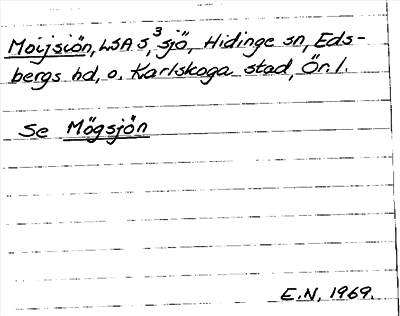 Moijsiön, LSA S, ³sjö, Hidinge sn, Eds-
bergs hd, o. Karlskoga stad, Ör. l.
Se Mögsjön
E.N. 1969.